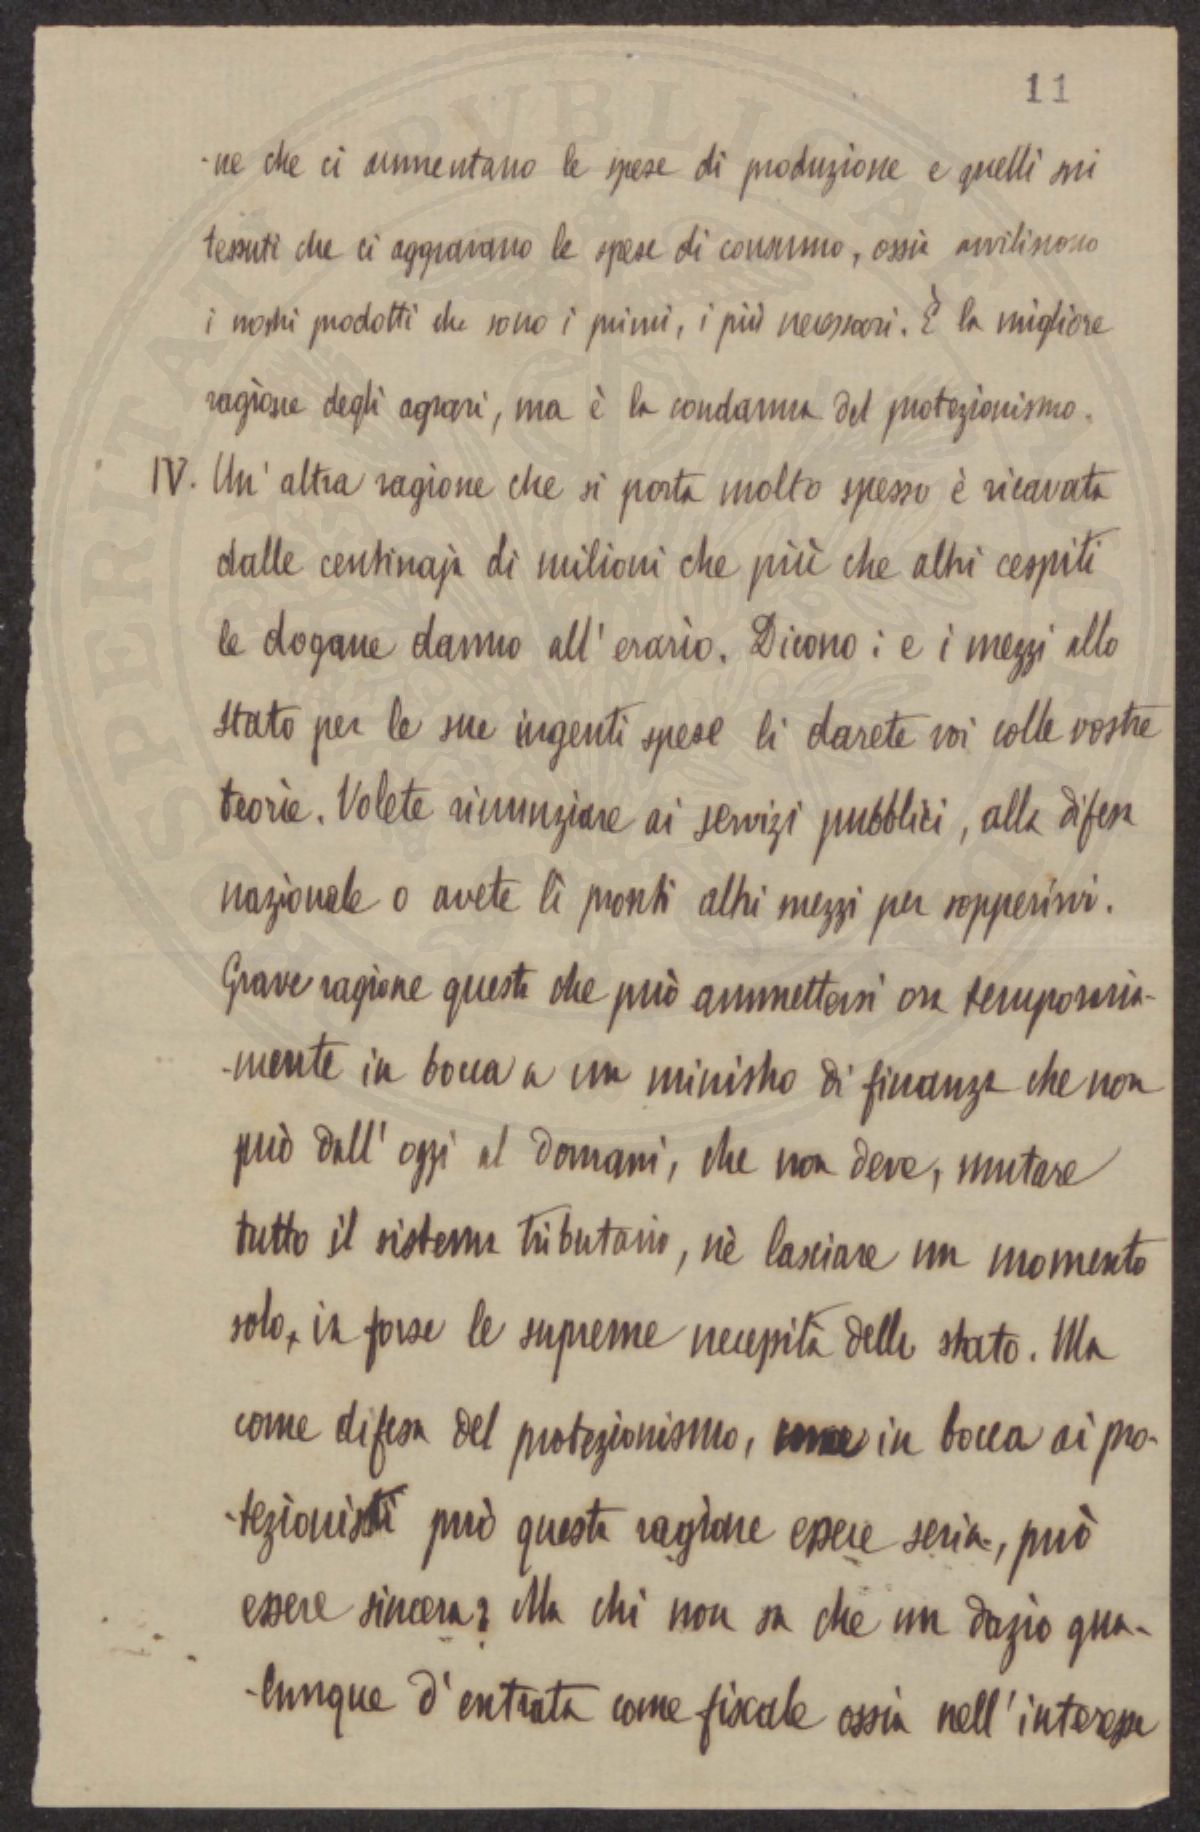 11
-ne che ci aumentano le spese di produzione e quelli sui
tessuti che ci aggravano le spese di consumo, ossia avviliscono
i nostri prodotti che sono i primi, i più necessari. È la migliore
ragione degli agrari, ma è la condanna del protezionismo.
IV. Un' altra ragione che si porta molto spesso è ricavata
dalle centinaja di milioni che più che altri cespiti
le dogane danno all' erario. Dicono: e i mezzi allo
stato per le sue ingenti spese li darete voi colle vostre
teorie. Volete rinunziare ai servizi pubblici, alla difesa
nazionale o avete lì pronti altri mezzi per sopperirvi.
Grave ragione questa che può ammettersi ora temporaria-
-mente in bocca a un ministro di finanza che non
può dall' oggi al domani, che non deve, mutare
tutto il sistema tributario, nè lasciare un momento
solo, in forse le supreme necessità dello stato. Ma
come difesa del protezionismo, come in bocca ai pro-
-tezionisti può questa ragione essere seria, può
essere sincera? Ma chi non sa che un dazio qua-
-lunque d' entrata come fiscale ossia nell' interesse
PROSPERITATI PVBLICAE AVGENDAE